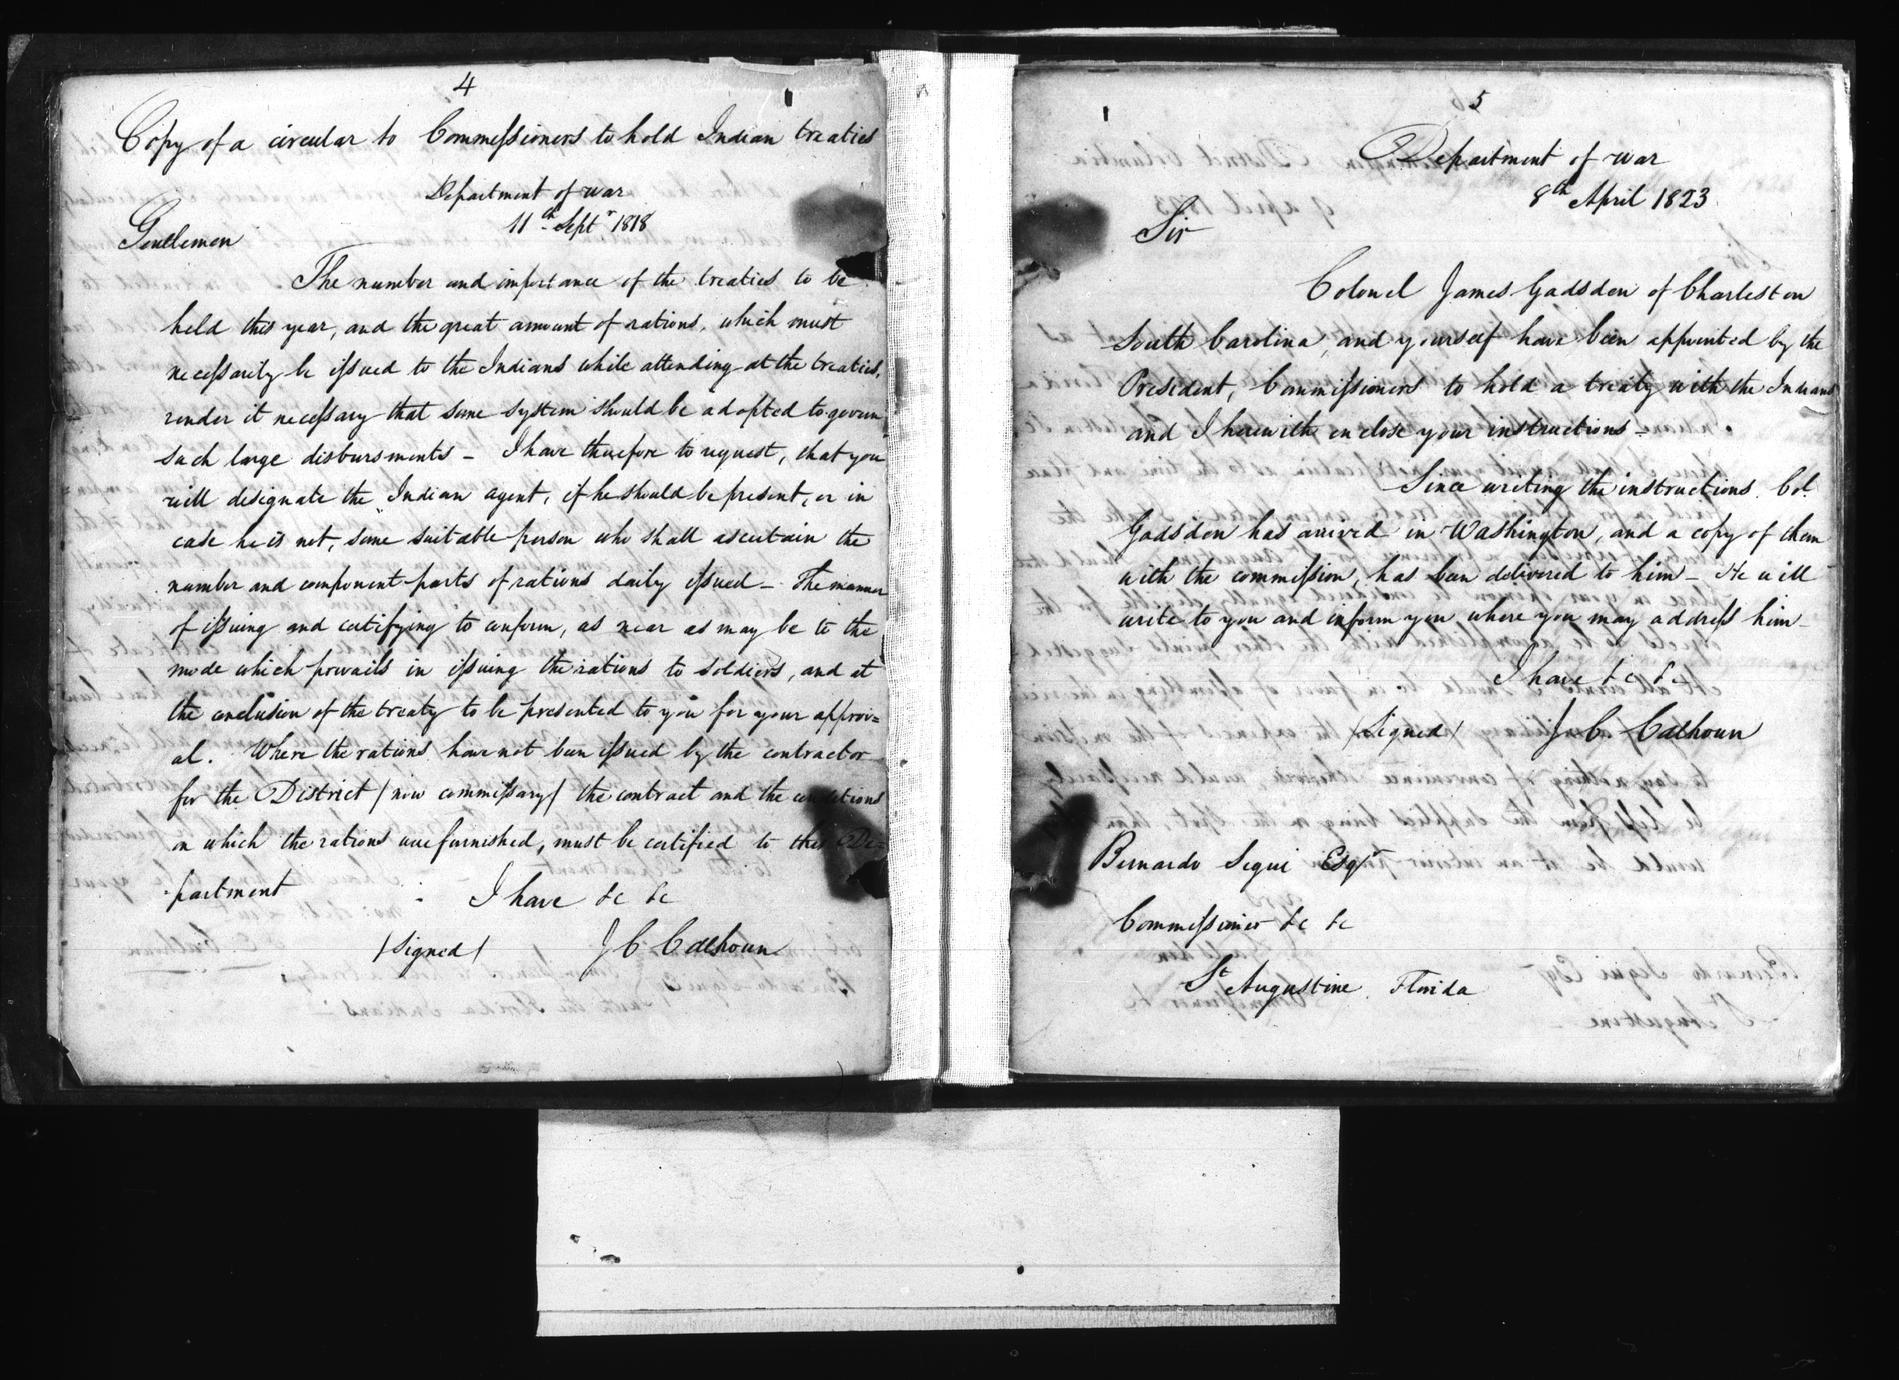 4
Copy of a circular to Commissioners to hold Indian treaties
Department of war
11th Septr 1818
Gentlemen
The number and importance of the treaties to be
held this year, and the great amount of rations, which must
necessarily be issued to the Indians while attending at the treaties,
render it necessary that some system should be adopted to govern
such large disbursments - I have therefore to request, that you
will designate the Indian agent, if he should be present, or in
case he is not, some suitable person who shall ascertain the
number and component parts of rations daily issued - The manner
of issuing and certifying to conform, as near as may be to the
mode which prevails in issuing the rations to soldiers, and at
the conclusion of the treaty to be presented to you for your approv=
al. Where the rations have not been issued by the contractor
for the District / now commissary / the contract and the conditions
on which the rations are furnished, must be certified to this De=
partment
I have &c &c
/ Signed / J C Calhoun
5
Department of war
8th April 1823
Sir
Colonel James Gadsden of Charleston
South Carolina, and yourself have been appointed by the
President, Commissioners to hold a treaty with the Indians
and I herewith enclose your instructions -
Since writing the instructions Col.
Gadsden has arrived in Washington, and a copy of them
with the commission, has been delivered to him - He will
write to you and inform you where you may address him -
I have &c &c
/ Signed / J C Calhoun
Bernardo Segui Esqr
Commissioner &c &c
St Augustine Florida